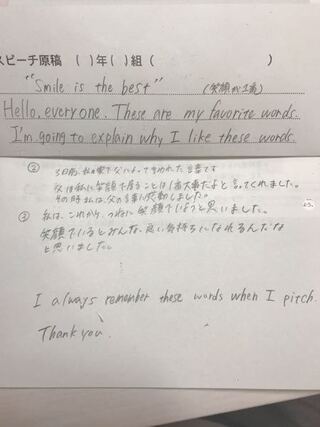 スピーチ原稿 ( )年( )組 ( )
"Smile is the best" (笑顔が1番)
Hello, everyone. These are my favorite words.
I'm going to explain why I like these words.
② 3日前、私の家で父によって言われた言葉です
父は私に笑顔で居ることは1番大事だよと言ってくれました。
その時私は、父の言葉に感動しました。
③ 私は、これから、つねに笑顔でいようと思いました。
笑顔でいるとみんな、良い気持ちになれるんだな
と思いました。
I always remember these words when I pitch.
Thank you.